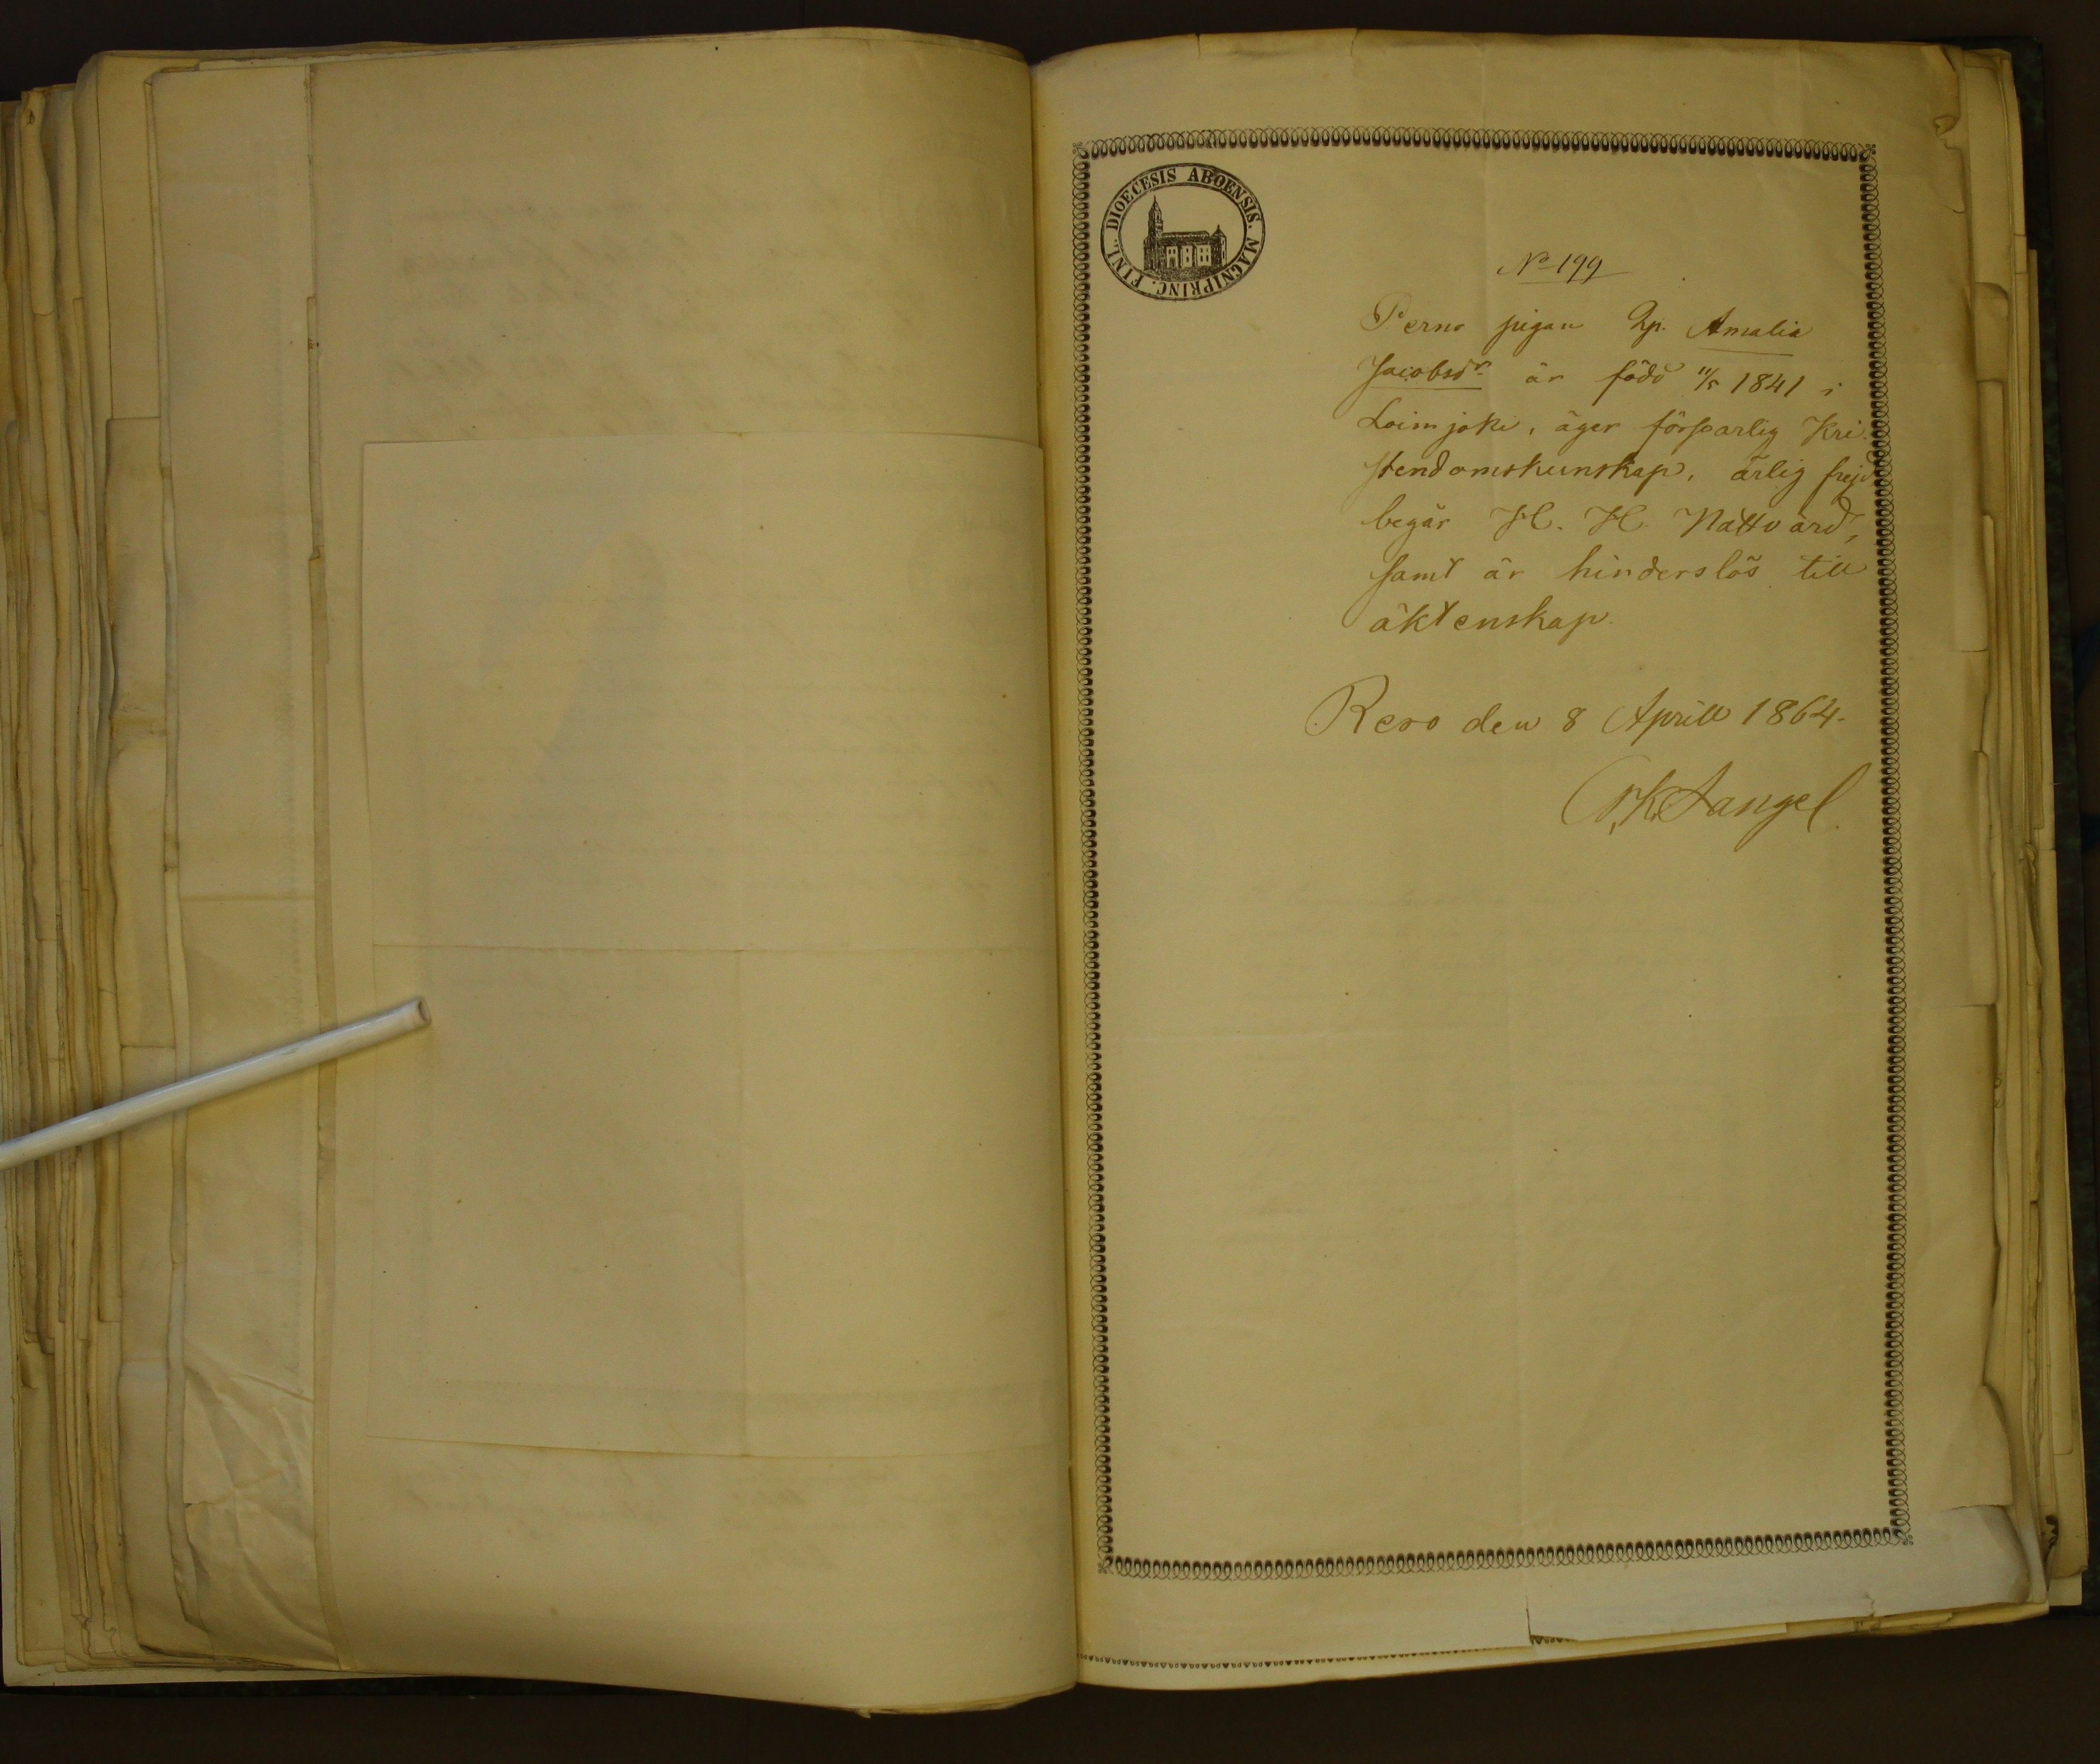 DIOECESIS ABOENSIS. MAGNIPRINC. FINL.
No 199
Perno pigan Qp. Amalia
Jacobsdr är född 11/5 1841 i
Loimjoki, äger försvarlig Kri-
stendomskunskap, ärlig frejd
begår H. H. Nattvard,
samt är hinderslös till
äktenskap.
Reso den 8 Aprill 1864.
K. Tangel.